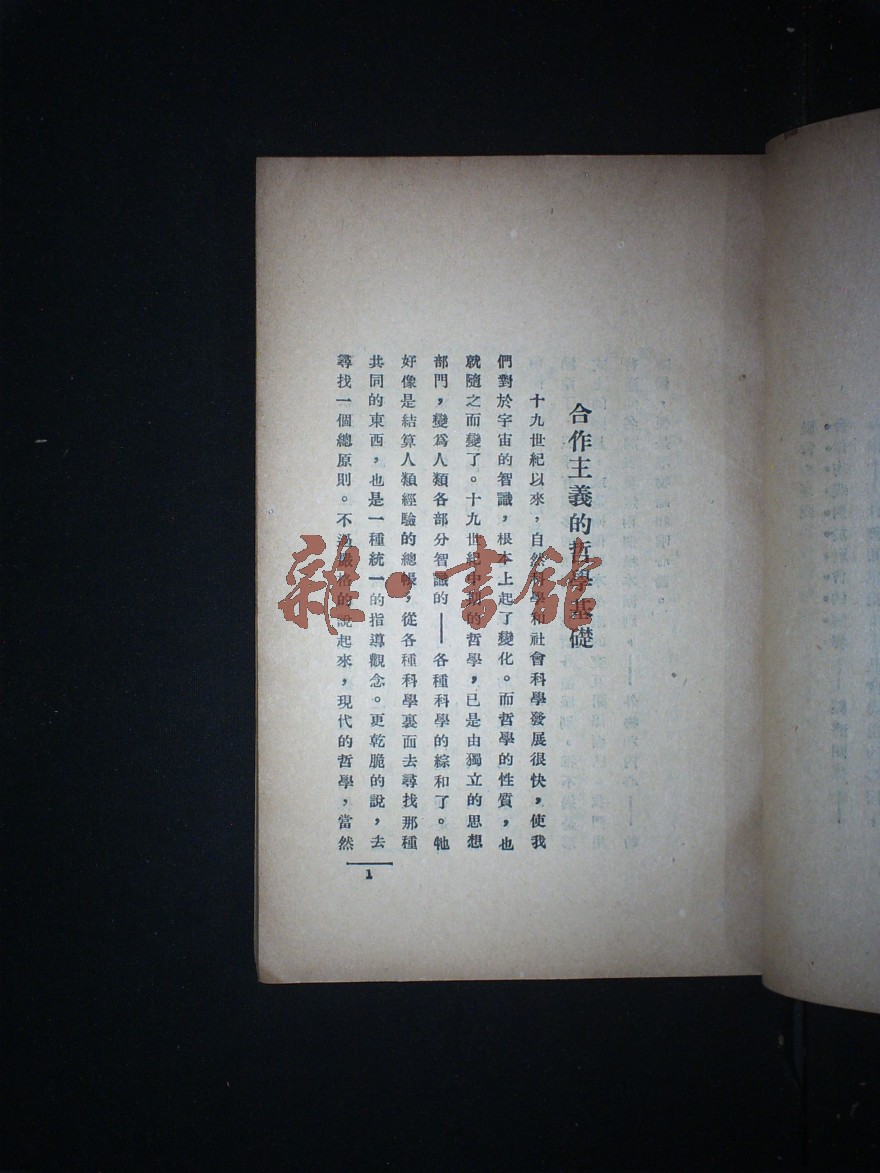 合作主義的哲學基礎
十九世紀以來，自然科學和社會科學發展很快，使我
們對於宇宙的智識，根本上起了變化。而哲學的性質，也
就隨之而變了。十九世紀中期的哲學，已是由獨立的思想
部門，變爲人類各部分智識的——各種科學的綜和了。牠
好像是結算人類經驗的總帳，從各種科學裏面去尋找那種
共同的東西，也是一種統一的指導觀念。更乾脆的說，去
尋找一個總原則。不過嚴格的說起來，現代的哲學，當然
1
雜·書館